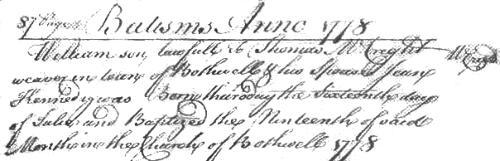 87 Page Batisms Anno 1778
William son lawfull to Thomas McCright
weaver in town of Bothwell & his Spouse Jean McCright
Kennedy was Born thursday the Sixteenth day
of Julie and Baptized the Ninteenth of said
Month in the Church of Bothwell 1778